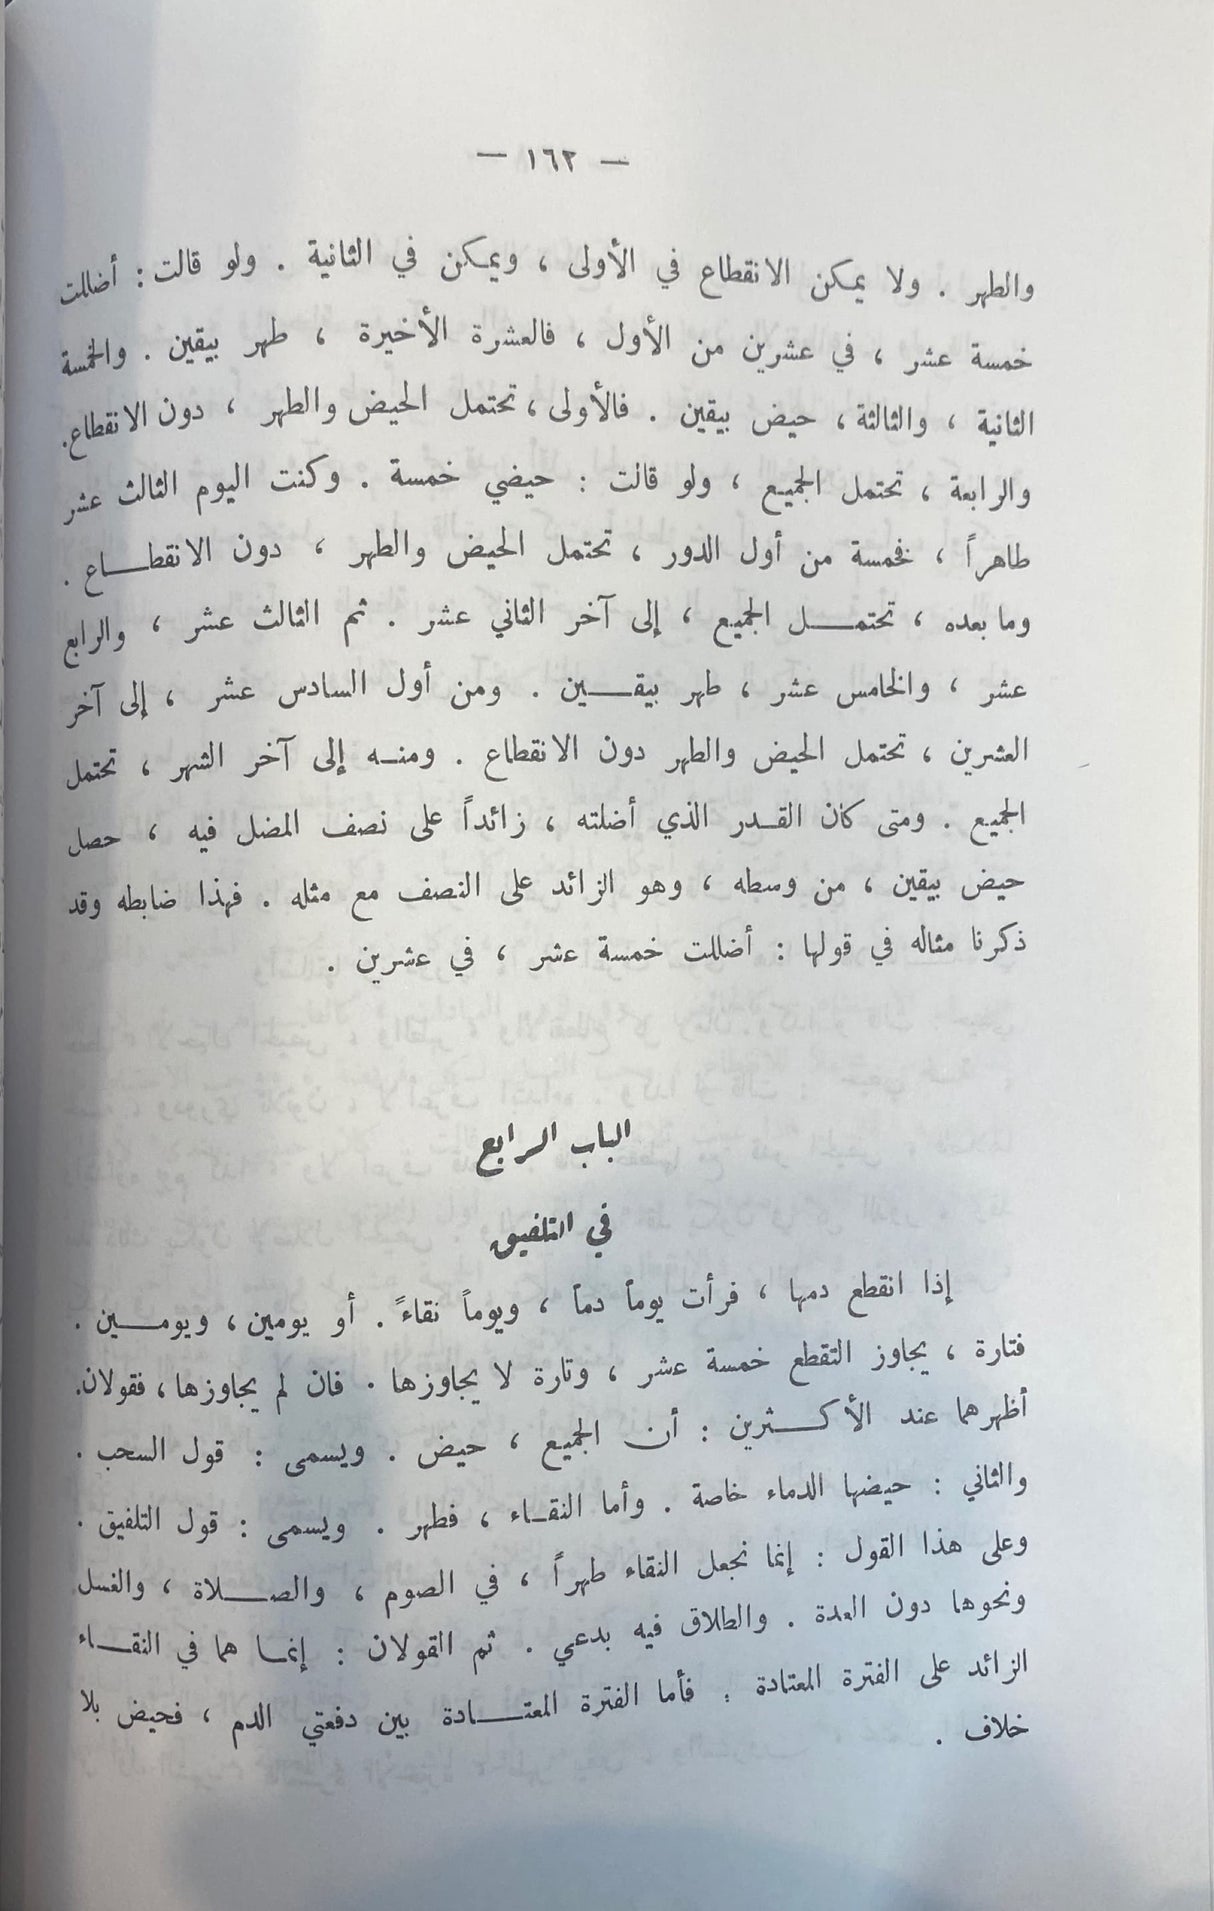 — ١٦٢ —
والطهر . ولا يمكن الانقطاع في الأولى ، ويمكن في الثانية . ولو قالت : أضللت
خمسة عشر ، في عشرين من الأول ، فالعشرة الأخيرة ، طهر بيقين . والخمسة
الثانية ، والثالثة ، حيض بيقين . فالأولى ، تحتمل الحيض والطهر ، دون الانقطاع .
والرابعة ، تحتمل الجميع ، ولو قالت : حيضي خمسة . وكنت اليوم الثالث عشر
طاهراً ، فخمسة من أول الدور ، تحتمل الحيض والطهر ، دون الانقطاع .
وما بعده ، تحتمل الجميع ، إلى آخر الثاني عشر . ثم الثالث عشر ، والرابع
عشر ، والخامس عشر ، طهر بيقين . ومن أول السادس عشر ، إلى آخر
العشرين ، تحتمل الحيض والطهر دون الانقطاع . ومنه إلى آخر الشهر ، تحتمل
الجميع . ومتى كان القدر الذي أضلته ، زائداً على نصف المضل فيه ، حصل
حيض بيقين ، من وسطه ، وهو الزائد على النصف مع مثله . فهذا ضابطه وقد
ذكرنا مثاله في قولها : أضللت خمسة عشر ، في عشرين .
الباب الرابع
في التلفيق
إذا انقطع دمها ، فرأت يوماً دماً ، ويوماً نقاءً . أو يومين ، ويومين .
فتارة ، يجاوز التقطع خمسة عشر ، وتارة لا يجاوزها . فان لم يجاوزها ، فقولان .
أظهرهما عند الأكثرين : أن الجميع ، حيض . ويسمى : قول السحب .
والثاني : حيضها الدماء خاصة . وأما النقاء ، فطهر . ويسمى : قول التلفيق .
وعلى هذا القول : إنما نجعل النقاء طهراً ، في الصوم ، والصلاة ، والغسل
ونحوها دون العدة . والطلاق فيه بدعي . ثم القولان : إنما هما في النقاء
الزائد على الفترة المعتادة . فأما الفترة المعتادة بين دفعتي الدم ، فحيض بلا
خلاف .